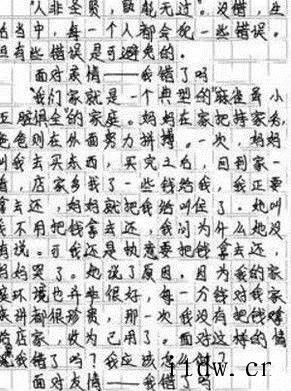 "人非圣贤,孰能无过"。没错,生
活当中,每一个人都会犯一些错误。
但有些错误是可避免的。
面对亲情——我错了吗
"我们家就是一个典型的"麻雀虽小
五脏俱全"的家庭。妈妈在家把持家务,
爸爸则在外面努力拼搏。一次,妈妈
叫我去买东西,买完之后,回到家一
看,店家多找了一些钱给我,我正要
拿去还,妈妈就把我给叫住了。她叫
我不用把钱拿去还,我问为什么她没
有说。可我还是执意要把钱拿去还,
妈妈哭了。她说了原因,因为我的家
庭环境也并非很好,每一分钱对我家
来讲都很珍贵,那一次我没有把钱还
给店家,收为己用了。面对这样的情
况我错了吗?我应该
面对友情——我错了吗
ildw.cr